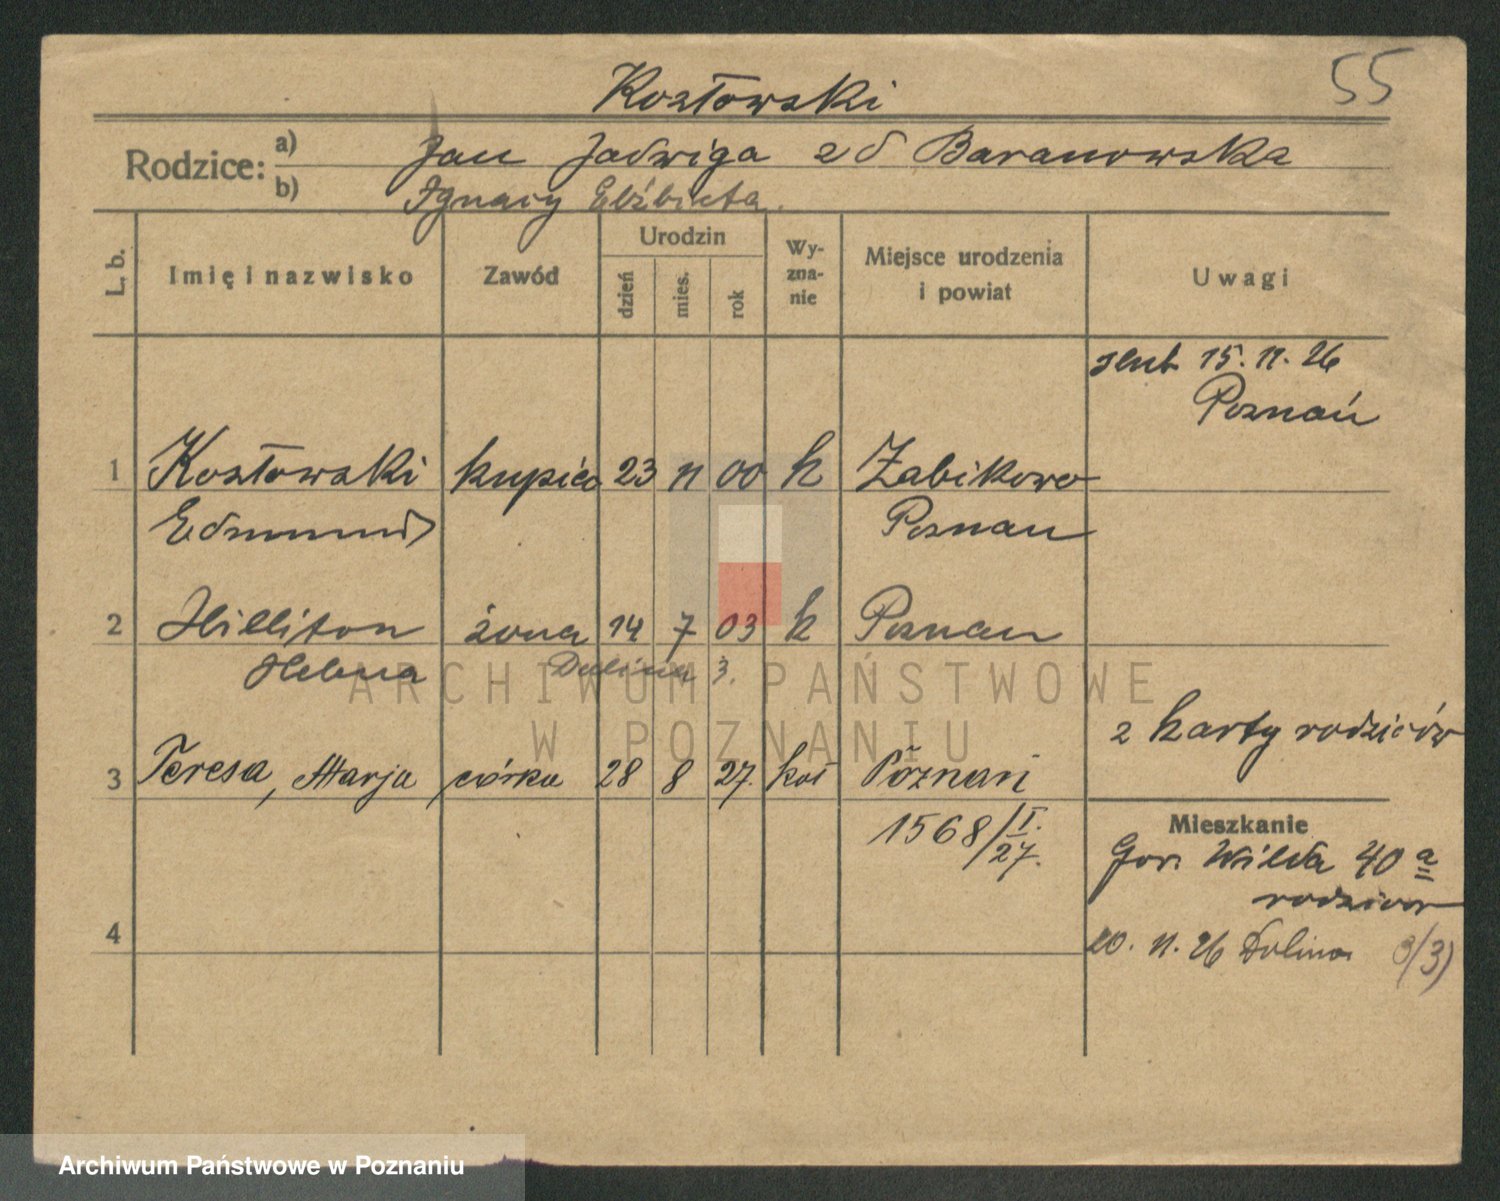 55
Kozłowski
Rodzice: a) Jan Jadwiga z d Baranowska
b) Ignacy Elżbieta.
L. b.
Imię i nazwisko
Zawód
Urodzin
dzień
mies.
rok
Wy-
zna-
nie
Miejsce urodzenia
i powiat
Uwagi
ślub 15. 11. 26
Poznań
1 Kozłowski kupiec 23 11 00 k Żabikowo
Edmund Poznan
2 Hilliton żona 14 7 03 k Poznan
Helena Dolina 3.
2 karty rodziców
3 Teresa, Marja córka 28 8 27. kat Poznań
1568/I.
27.
Mieszkanie
Gor. Wilda 40 a
rodzicow
4
20. 11. 26 Dolina 3/3)
ARCHIWUM PAŃSTWOWE
W POZNANIU
Archiwum Państwowe w Poznaniu